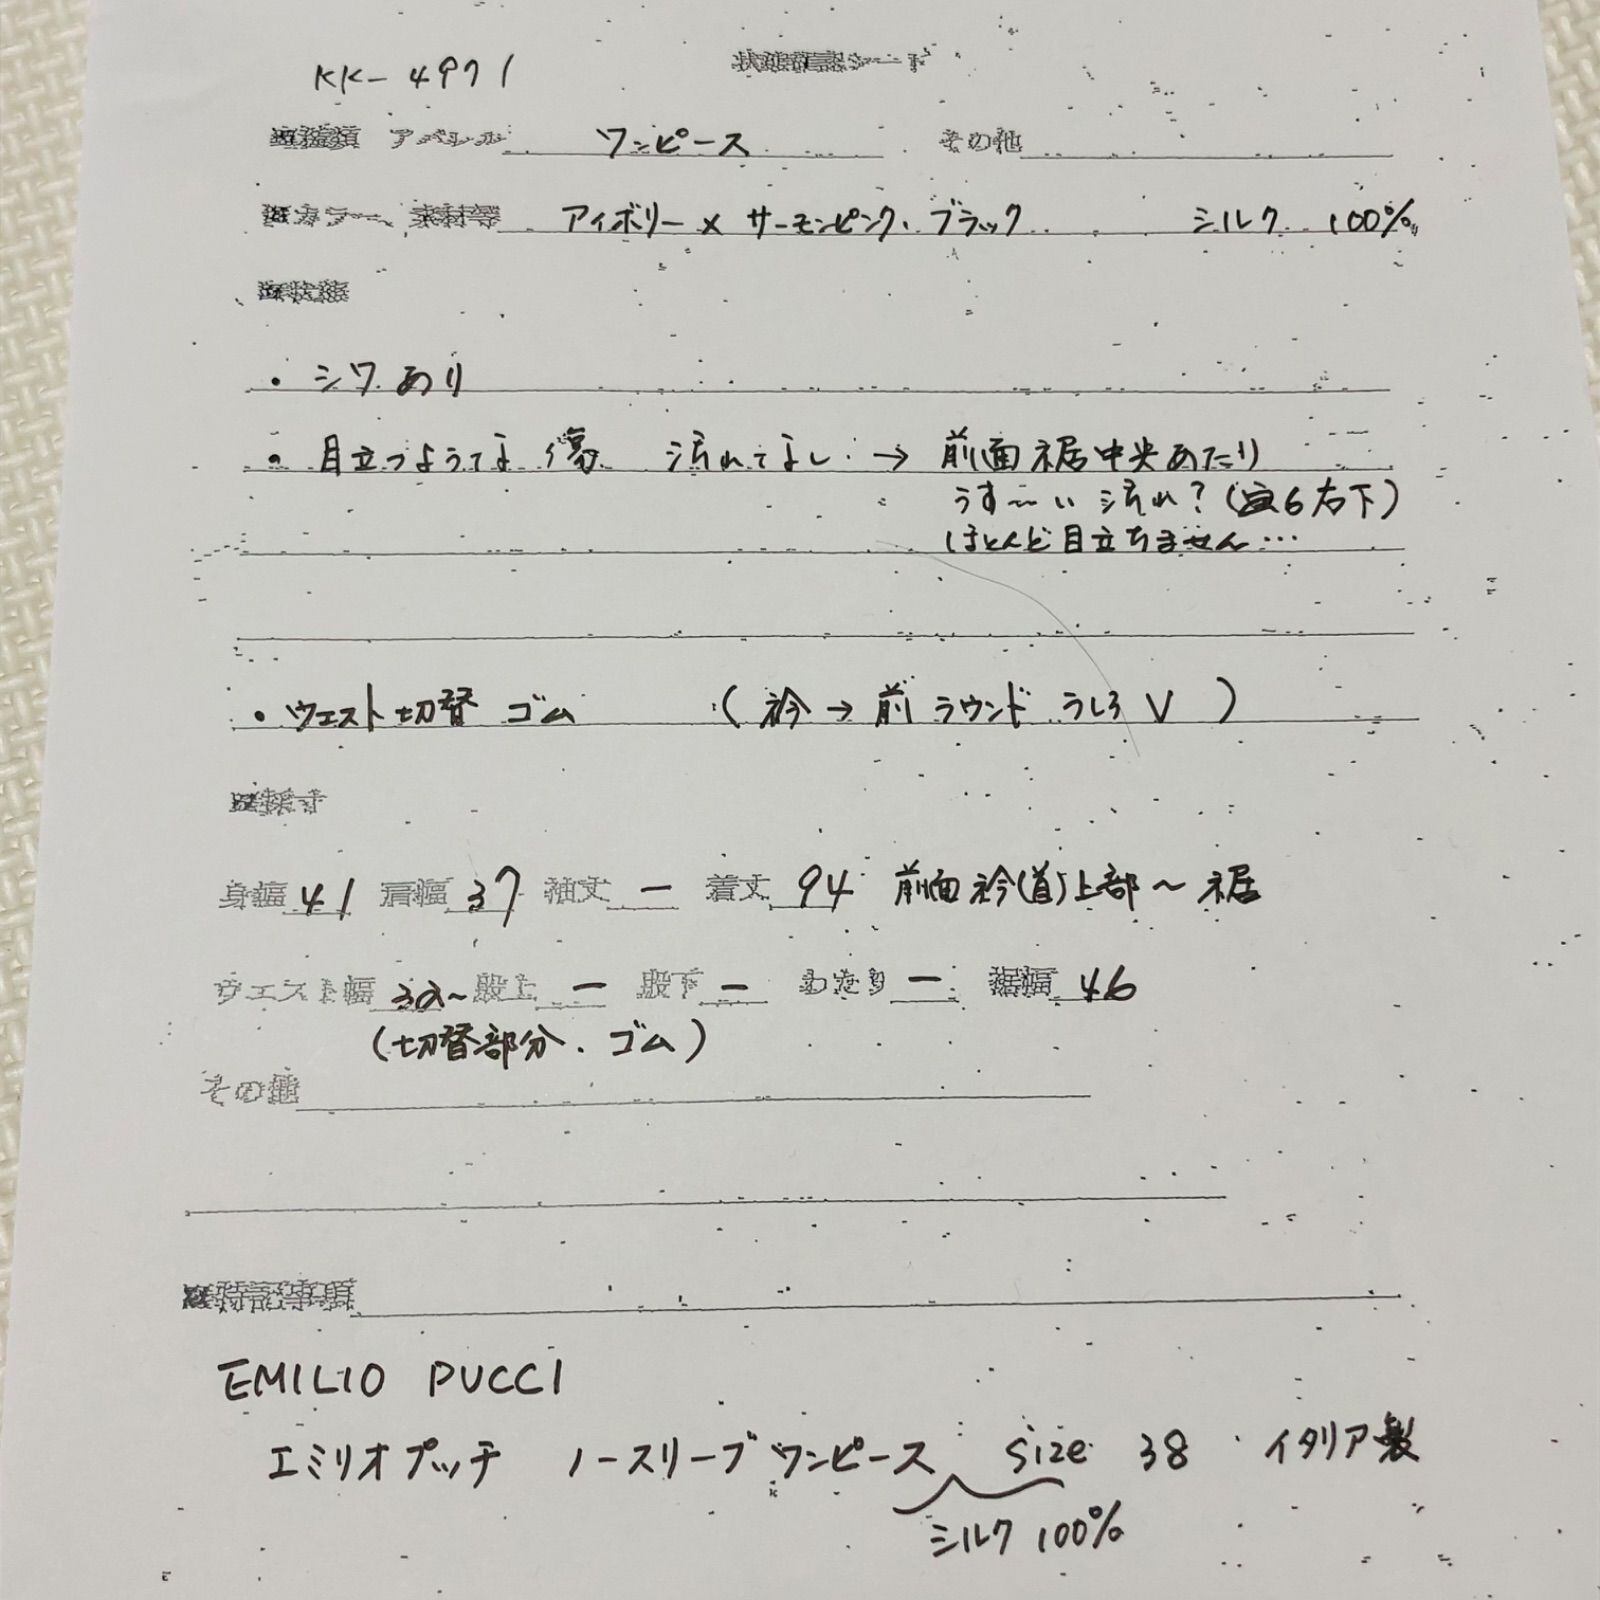 KK-4971
状態確認シート
アパレル ワンピース その他
カラー、素材等 アイボリー×サーモンピンク・ブラック シルク 100%
状態
・シワあり
・目立つような傷 汚れてなし → 前面裾中央あたり
うす〜い汚れ?( 右下)
ほとんど目立ちません…
・ウエスト切替 ゴム (衿→前ラウンド うしろV )
採寸
身幅 41 肩幅 37 袖丈 ー 着丈 94 前面衿(首)上部〜裾
ウエスト幅 32〜 股上 ー 股下 ー わたり ー 裾幅 46
(切替部分、ゴム)
その他
特記事項
EMILIO PUCCI
エミリオプッチ ノースリーブワンピース size 38 ・イタリア製
シルク 100%